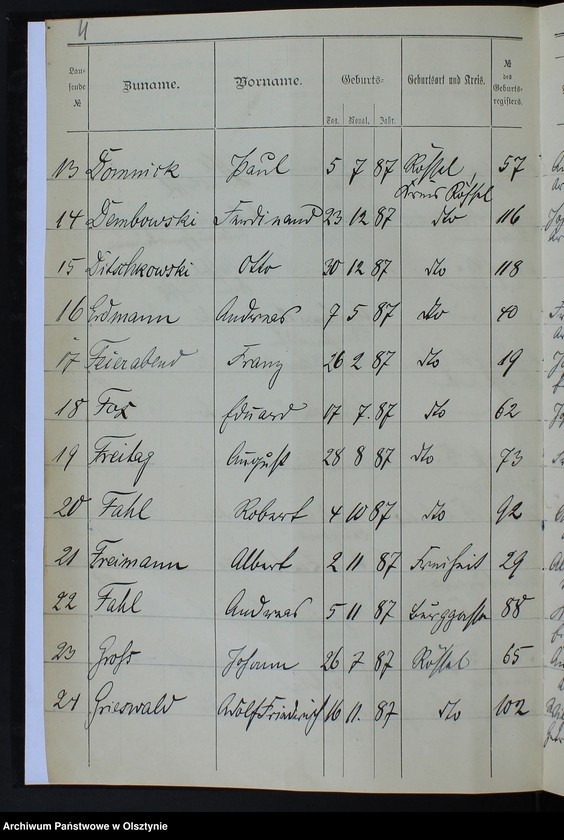 4
Lau-
fende
№
Zuname.
Vorname.
Geburts-
Tag. Monat. Jahr.
Geburtsort und Kreis.
№
des
Geburts-
registers.
13 Domnick Paul 5 7 87 Rössel, 57
Kreis Rössel
14 Dembowski Ferdinand 23 12 87 dto 116
15 Ditschkowski Otto 30 12 87 dto 118
16 Erdmann Andreas 7 5 87 dto 40
17 Feierabend Franz 26 2 87 dto 19
18 Fox Eduard 17 7. 87 dto 62
19 Freitag August 28 8 87 dto 73
20 Fahl Robert 4 10 87 dto 92
21 Freimann Albert 2 11 87 Freiheit 29
22 Fahl Andreas 5 11 87 Burggasse 88
23 Groß Johann 26 7 87 Rössel 65
24 Grieswald Adolf Friedrich 16 11. 87 dto 102
Archiwum Państwowe w Olsztynie